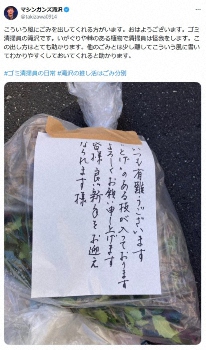 マシンガンズ滝沢
@takizawa0914
こういう風にごみを出してくれる方がいます。おはようございます。ゴミ
清掃員の滝沢です。いがぐりや棘のある植物で清掃員は怪我をします。こ
の出し方はとても助かります。他のごみとは少し離してこういう風に書い
てわかりやすくしておいてくれると助かります。
#ゴミ清掃員の日常 #滝沢の推し活はごみ分別
いつも有難うございます
とげのある枝が入っております
よろしくお願い申し上げます
皆様良い新年をお迎え
なられます様